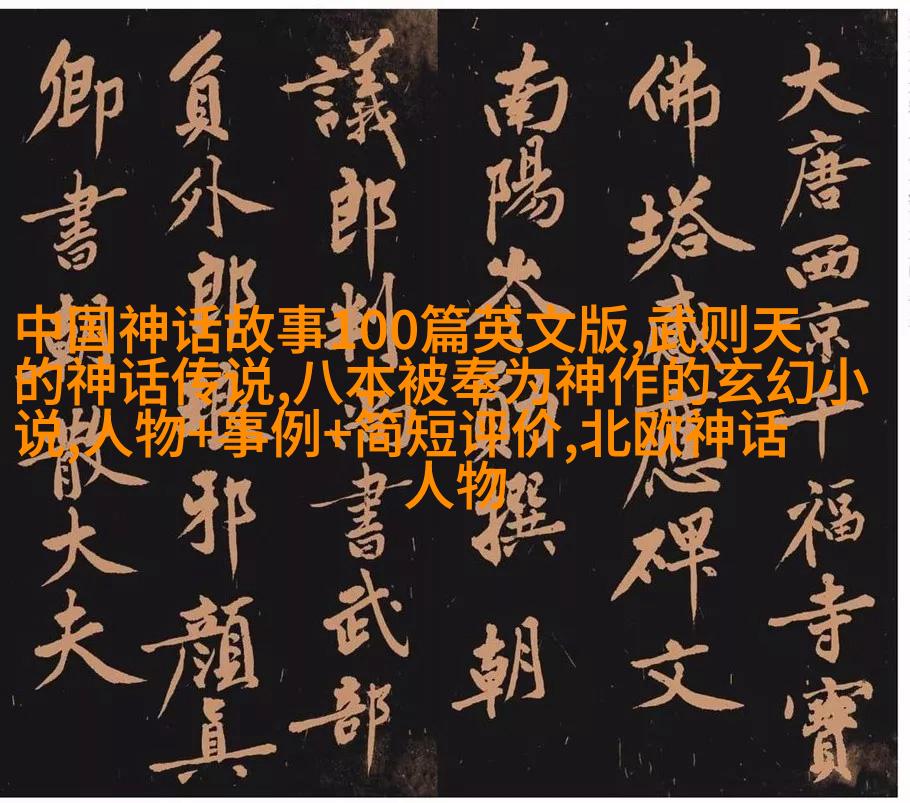 中国神话故事100篇英文版,武则天
的神话传说,八本被奉为神作的玄幻小
说,人物+事例+简短评价,北欧神话
人物
大唐西京千福寺寶
佛塔感應碑文
南陽岑勛撰 朝
議郎判書武部
員外郎邪顏眞
卿書朝散大夫